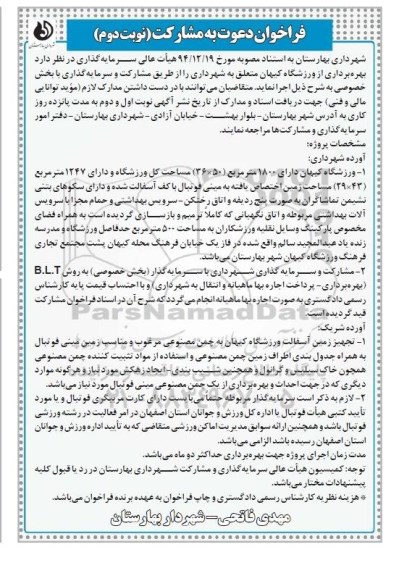 فراخوان دعوت به مشارکت (نوبت دوم)
شهرداری بهارستان به استناد مصوبه مورخ ۹۴/۱۲/۱۹ هیأت عالی سرمایه‌گذاری در نظر دارد
بهره‌برداری از ورزشگاه کیهان متعلق به شهرداری را از طریق مشارکت و سرمایه‌گذاری با بخش
خصوصی به شرح ذیل اجرا نماید. متقاضیان می‌توانند با در دست داشتن مدارک لازم (مؤید توانایی
مالی و فنی) جهت دریافت اسناد و مدارک از تاریخ نشر آگهی نوبت اول و دوم به مدت پانزده روز
کاری به آدرس شهر بهارستان - بلوار بهشت - خیابان آزادی - شهرداری بهارستان - دفتر امور
سرمایه‌گذاری و مشارکت‌ها مراجعه نمایند.
مشخصات پروژه:
آورده شهرداری:
۱- ورزشگاه کیهان دارای ۱۸۰۰ مترمربع (۵۰×۳۶) مساحت کل ورزشگاه و دارای ۱۲۴۷ مترمربع
(۴۳×۲۹) مساحت زمین اختصاص یافته به مینی فوتبال با کف آسفالت شده و دارای سکوهای بتنی
نشیمن تماشاگران به صورت پنج ردیفه و اتاق رختکن - سرویس بهداشتی و حمام مجزا با سرویس
آلات بهداشتی مربوطه و اتاق نگهبانی که کاملاً ترمیم و بازسازی گردیده است به همراه فضای
مخصوص پارکینگ وسایل نقلیه ورزشکاران به مساحت ۵۰۰ مترمربع حدفاصل ورزشگاه و مدرسه
زنده یاد عبدالمجید سالم واقع شده در فاز یک خیابان فرهنگ محله کیهان پشت مجتمع تجاری
فرهنگ ورزشگاه کیهان شهر بهارستان می‌باشد.
۲- مشارکت و سرمایه گذاری شهرداری با سرمایه گذار (بخش خصوصی) به روش B.L.T
(بهره‌برداری - پرداخت اجاره بها ماهیانه و انتقال به شهرداری) و با احتساب قیمت پایه کارشناس
رسمی دادگستری به صورت اجاره بها ماهیانه انجام می‌گردد که شرح آن در اسناد فراخوان مشارکت
قید گردیده است.
آورده شریک:
۱- تجهیز زمین آسفالت ورزشگاه کیهان به چمن مصنوعی مرغوب و مناسب زمین مینی فوتبال
به همراه جدول بندی اطراف زمین چمن مصنوعی و استفاده از مواد تثبیت کننده چمن مصنوعی
همچون خاک سیلیس و گرانول و همچنین شیب بندی - ایجاد زهکش مورد نیاز و هرگونه موارد
دیگری که در جهت احداث و بهره‌برداری از یک چمن مصنوعی مینی فوتبال مورد نیاز می‌باشد.
۲- لازم به ذکر است سرمایه گذار مربوطه حتماً می‌بایست دارای کارت مربیگری فوتبال و یا مورد
تأیید کتبی هیأت فوتبال یا اداره کل ورزش و جوانان استان اصفهان در امر فعالیت در رشته ورزشی
فوتبال باشد و همچنین ارائه سوابق مدیریت اماکن ورزشی متقاضی که به تأیید اداره ورزش و جوانان
استان اصفهان رسیده باشد الزامی می‌باشد.
مدت زمان اجرای پروژه جهت بهره‌برداری حداکثر دو ماه می‌باشد.
توجه: کمیسیون هیأت عالی سرمایه گذاری و مشارکت شهرداری بهارستان در رد یا قبول کلیه
پیشنهادات مختار می‌باشد.
* هزینه نظریه کارشناس رسمی دادگستری و چاپ فراخوان به عهده برنده فراخوان می‌باشد.
مهدی فاتحی - شهردار بهارستان
ParsNamadData